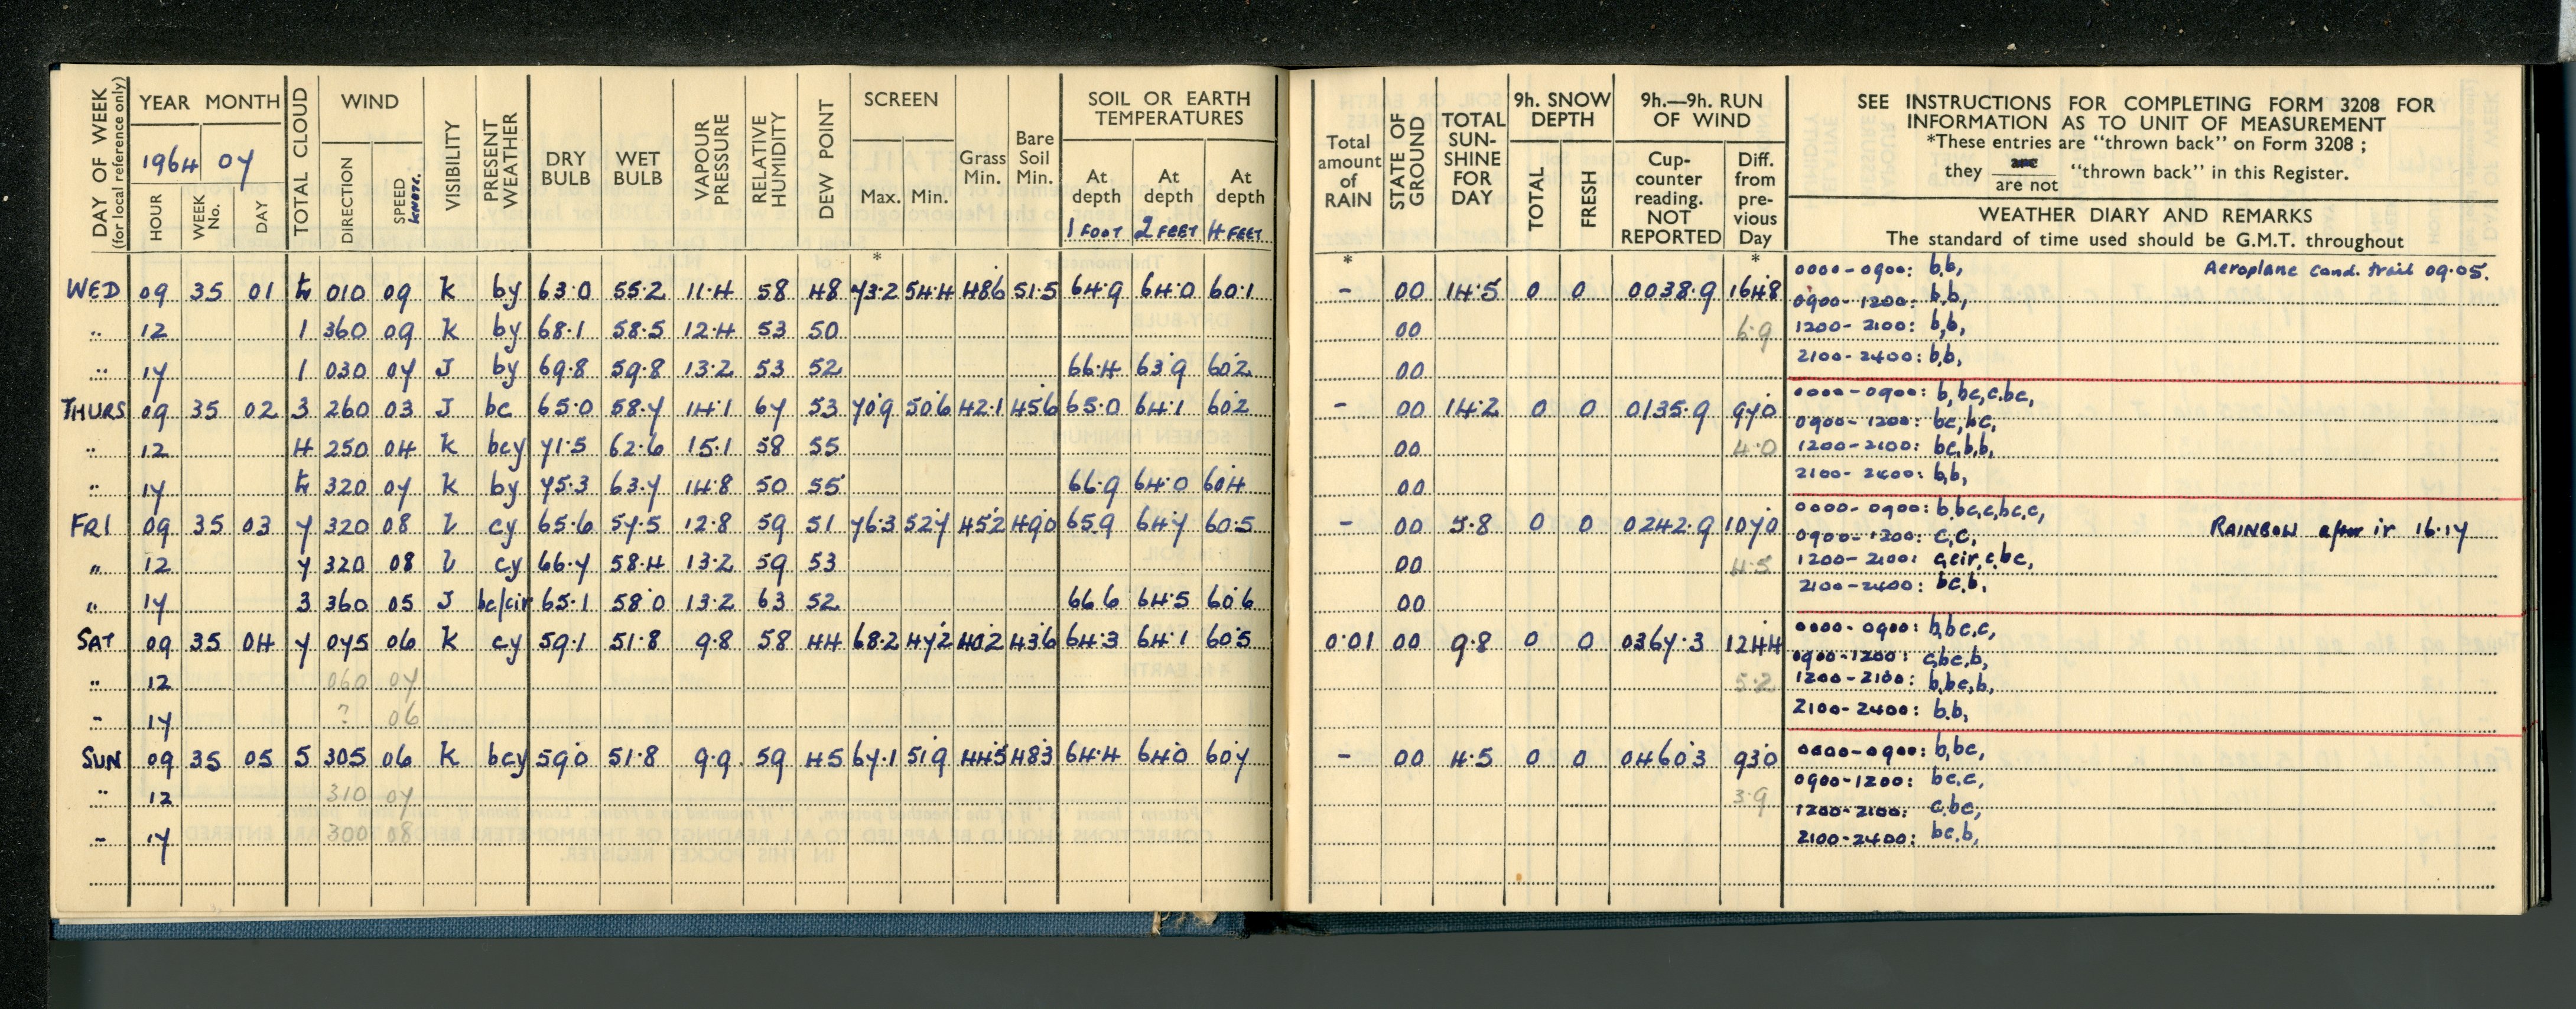 DAY OF WEEK
(for local reference only)
YEAR MONTH
1964 07
HOUR
WEEK No.
DAY
TOTAL CLOUD
WIND
DIRECTION
SPEED KNOTS.
VISIBILITY
PRESENT WEATHER
DRY BULB
WET BULB
VAPOUR PRESSURE
RELATIVE HUMIDITY
DEW POINT
SCREEN
Max. Min.
*
Grass Min.
Bare Soil Min.
SOIL OR EARTH TEMPERATURES
At depth 1 FOOT
At depth 2 FEET
At depth 4 FEET
Total amount of RAIN
*
STATE OF GROUND
TOTAL SUN-SHINE FOR DAY
9h. SNOW DEPTH
TOTAL
FRESH
9h.—9h. RUN OF WIND
Cup-counter reading. NOT REPORTED
Diff. from pre-vious Day
*
SEE INSTRUCTIONS FOR COMPLETING FORM 3208 FOR
INFORMATION AS TO UNIT OF MEASUREMENT
*These entries are "thrown back" on Form 3208 ;
they are / are not "thrown back" in this Register.
WEATHER DIARY AND REMARKS
The standard of time used should be G.M.T. throughout
WED 09 35 01 tr 010 09 K by 63.0 55.2 11.4 58 48 73.2 54.4 48.6 51.5 64.9 64.0 60.1 - 00 14.5 0 0 0038.9 164.8
0000-0900: b,b, Aeroplane cond. trail 09.05.
0900-1200: b,b,
" 12 1 360 09 K by 68.1 58.5 12.4 53 50 00 6.9
1200-2100: b,b,
" 17 1 030 07 J by 69.8 59.8 13.2 53 52 66.4 63.9 60.2 00
2100-2400: b,b,
THURS 09 35 02 3 260 03 J bc 65.0 58.7 14.1 67 53 70.9 50.6 42.1 45.6 65.0 64.1 60.2 - 00 14.2 0 0 0135.9 97.0
0000-0900: b,bc,c,bc,
0900-1200: bc,bc,
" 12 4 250 04 K bcy 71.5 62.6 15.1 58 55 00 4.0
1200-2100: bc,b,b,
" 17 tr 320 07 K by 75.3 63.7 14.8 50 55 66.9 64.0 60.4 00
2100-2400: b,b,
FRI 09 35 03 7 320 08 L cy 65.6 57.5 12.8 59 51 76.3 52.7 45.2 49.0 65.9 64.7 60.5 - 00 5.8 0 0 0242.9 107.0
0000-0900: b,bc,c,bc,c,
0900-1200: c,c, RAINBOW after ir 16.17
" 12 7 320 08 L cy 66.7 58.4 13.2 59 53 00 4.5
1200-2100: c,cir,c,bc,
" 17 3 360 05 J bc/cir 65.1 58.0 13.2 63 52 66.6 64.5 60.6 00
2100-2400: bc,b,
SAT 09 35 04 7 075 06 K cy 59.1 51.8 9.8 58 44 68.2 47.2 40.2 43.6 64.3 64.1 60.5 0.01 00 9.8 0 0 0367.3 124.4
0000-0900: b,bc,c,
0900-1200: c,bc,b,
" 12 060 07 5.2
1200-2100: b,bc,b,
" 17 ? 06
2100-2400: b,b,
SUN 09 35 05 5 305 06 K bcy 59.0 51.8 9.9 59 45 67.1 51.9 44.5 48.3 64.4 64.0 60.7 - 00 4.5 0 0 0460.3 93.0
0000-0900: b,bc,
0900-1200: bc,c,
" 12 310 07 3.9
1200-2100: c,bc,
" 17 300 08
2100-2400: bc,b,